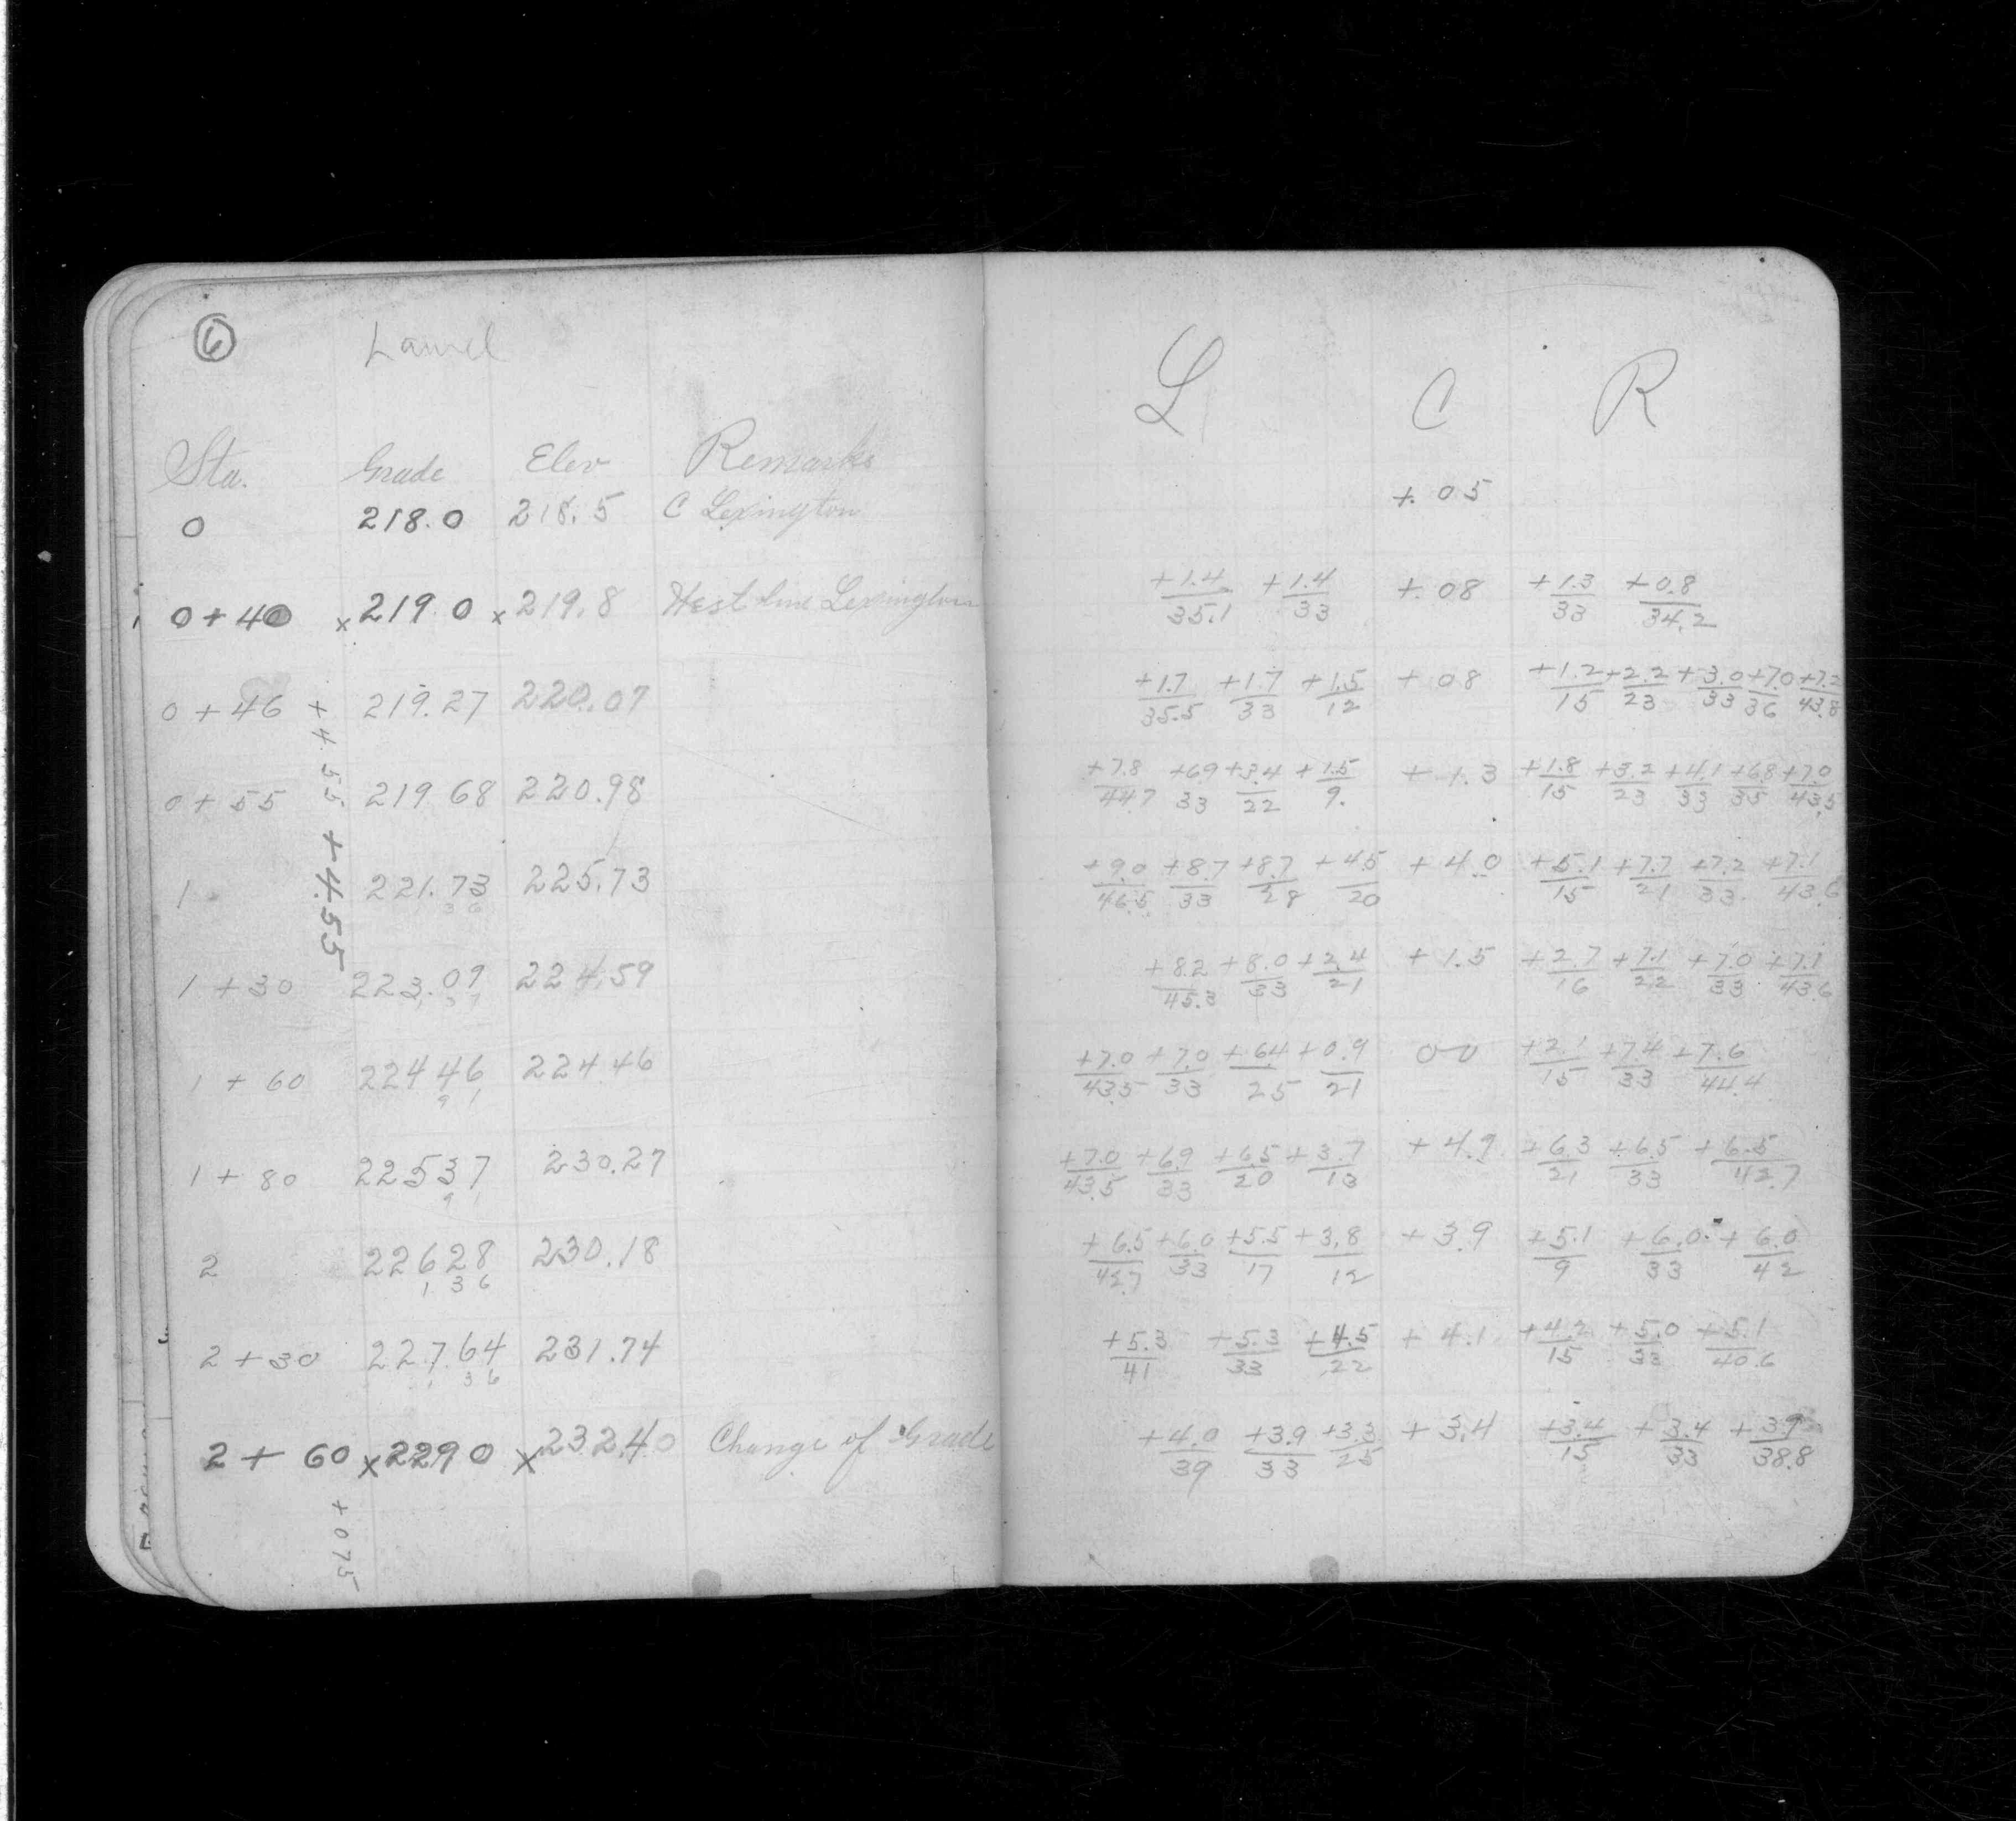 6 Laurel
Sta. Grade Elev Remarks
0 218.0 218.5 C Lexington
0+40 x 219.0 x 219.8 West line Lexington
0+46 219.27 220.07
0+55 219.68 220.98
1 221.73 225.73
36
1+30 223.09 224.59
37
1+60 224 46 224.46
91
1+80 22537 230.27
9
2 22628 230.18
1 36
2+30 227.64 231.74
1 36
2+60 x 2290 x 232.40 Change of Grade
+4 55 +4.55
+075
L C R
+.05
+1.4/35.1 +1.4/33 +.08 +1.3/33 +0.8/34.2
+1.7/35.5 +1.7/33 +1.5/12 +08 +1.2/15 +2.2/23 +3.0/33 +7.0/36 +7.2/43.8
+7.8/447 +69/33 +3.4/22 +1.5/9. +1.3 +1.8/15 +3.2/23 +4.1/33 +68/35 +7.0/43.5
+9.0/46.5 +8.7/33 +8.7/28 +45/20 +4.0 +5.1/15 +7.7/21 +7.2/33 +7.1/43.6
+8.2/45.3 +8.0/33 +2.4/21 +1.5 +2.7/16 +7.1/22 +7.0/33 +7.1/43.6
+7.0/43.5 +7.0/33 +64/25 +0.9/21 00 +2.1/15 +7.4/33 +7.6/44.4
+7.0/43.5 +6.9/33 +6.5/20 +3.7/13 +4.9 +6.3/21 +6.5/33 +6.5/42.7
+6.5/42.7 +6.0/33 +5.5/17 +3.8/12 +3.9 +5.1/9 +6.0/33 +6.0/42
+5.3/41 +5.3/33 +4.5/22 +4.1 +4.2/15 +5.0/33 +5.1/40.6
+4.0/39 +3.9/33 +3.3/25 +3.4 +3.4/15 +3.4/33 +3.9/38.8